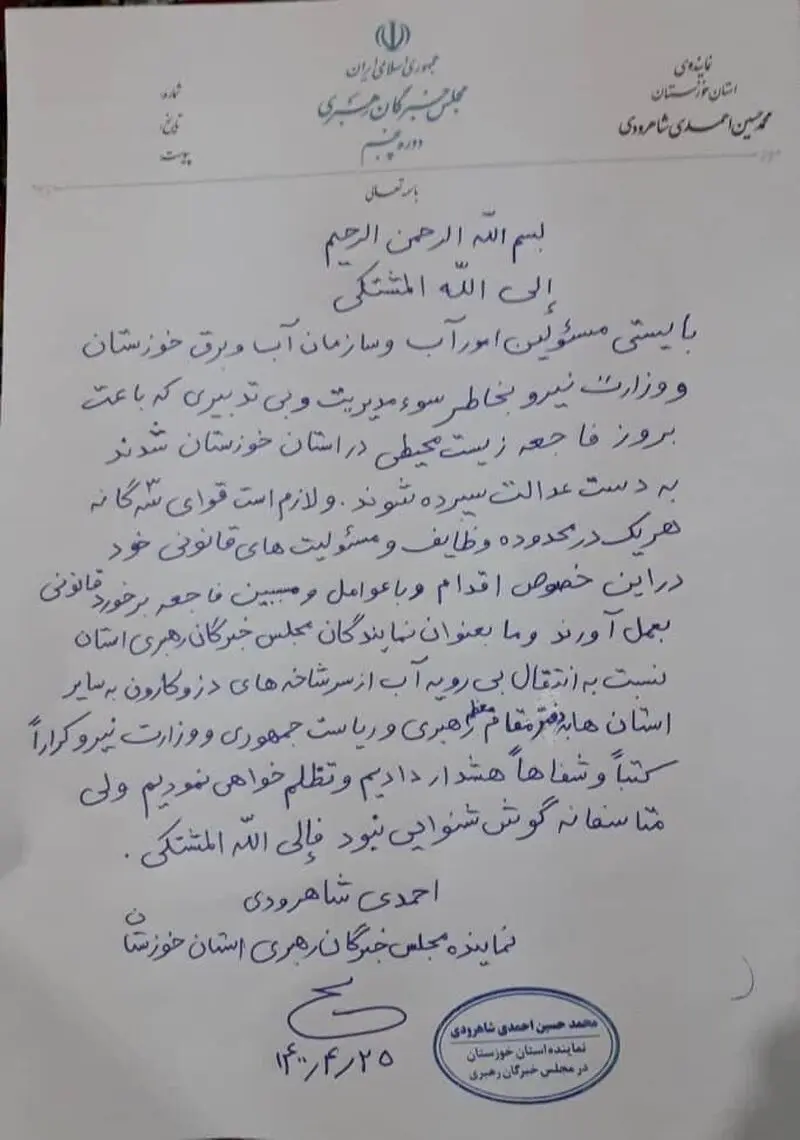 جمهوری اسلامی ایران
مجلس خبرگان رهبری
دوره پنجم
نمایندهٔ
استان خوزستان
محمد حسین احمدی شاهرودی
شماره:
تاریخ:
پیوست:
باسمه تعالی
بسم الله الرحمن الرحیم
إلی الله المشتکی
بایستی مسئولین امور آب و سازمان آب و برق خوزستان
و وزارت نیرو بخاطر سوء مدیریت و بی تدبیری که باعث
بروز فاجعه زیست محیطی در استان خوزستان شدند
به دست عدالت سپرده شوند. و لازم است قوای سه گانه
هر یک در محدوده وظایف و مسئولیت های قانونی خود
در این خصوص اقدام و با عوامل و مسببین فاجعه برخورد قانونی
بعمل آورند و ما بعنوان نمایندگان مجلس خبرگان رهبری استان
نسبت به انتقال بی رویه آب از سرشاخه های دز و کارون به سایر
استان ها به دفتر مقام معظم رهبری و ریاست جمهوری و وزارت نیرو کراراً
کتباً و شفاهاً هشدار دادیم و تظلم خواهی نمودیم ولی
متاسفانه گوش شنوایی نبود فإلی الله المشتکی.
احمدی شاهرودی
نماینده مجلس خبرگان رهبری استان خوزستان
۱۴۰۰/۴/۲۵
محمد حسین احمدی شاهرودی
نماینده استان خوزستان
در مجلس خبرگان رهبری